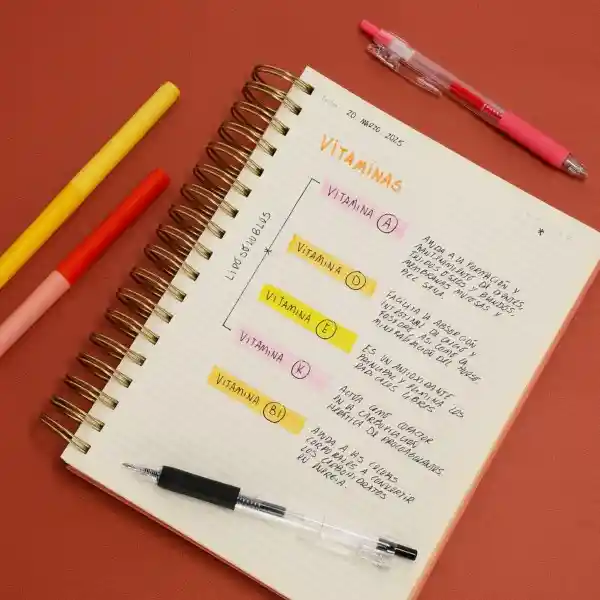 20 MARZO 2025
VITAMINAS
LIPOSOLUBLES
*
VITAMINA A
AYUDA A LA FORMACIÓN Y
MANTENIMIENTO DE DIENTES,
TEJIDOS ÓSEOS Y BLANDOS,
MEMBRANAS MUCOSAS Y
PIEL SANA.
VITAMINA D
FACILITA LA ABSORCIÓN
INTESTINAL DE CALCIO Y
FOSFORO, AS COMO LA
MINERALIZACIÓN DEL HUESO
VITAMINA E
ES UN ANTIOXIDANTE
PRINCIPAL Y ELIMINA LOS
RADICALES LIBRES
VITAMINA K
ACTÚA COMO COFACTOR
EN LA CARBOXILACIÓN
HEPÁTICA DE
VITAMINA B1
AYUDA A LAS CÉLULAS
CORPORALES A CONVERTIR
LOS CARBOHIDRATOS
EN ENERGÍA.
*